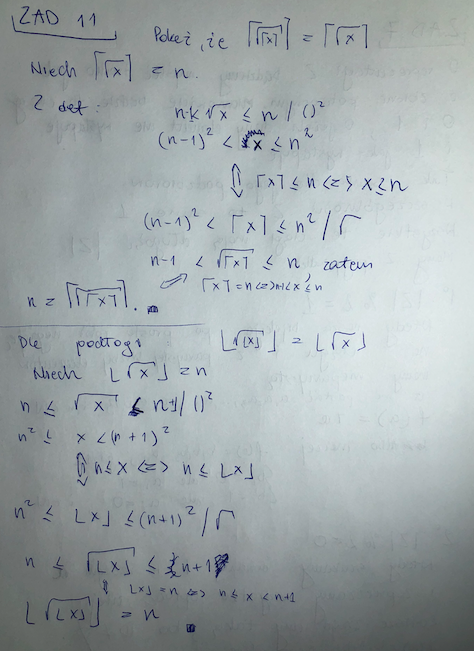 ZAD 11
Pokaż, że ⌈√⌈x⌉⌉ = ⌈√x⌉
Niech ⌈√x⌉ = n.
Z def. n-1 < √x ≤ n /()²
(n-1)² < x ≤ n²
⇕ ⌈x⌉ ≤ n <=> x ≤ n
(n-1)² < ⌈x⌉ ≤ n² /√
n-1 < √⌈x⌉ ≤ n, zatem
⌈x⌉ = n <=> n-1 < x ≤ n
n = ⌈√⌈x⌉⌉.
Dla podłogi ⌊√⌊x⌋⌋ = ⌊√x⌋
Niech ⌊√x⌋ = n
n ≤ √x < n+1 /()²
n² ≤ x < (n+1)²
⇕ n ≤ x <=> n ≤ ⌊x⌋
n² ≤ ⌊x⌋ ≤ (n+1)² /√
n ≤ √⌊x⌋ ≤ n+1
⇓ ⌊x⌋ = n <=> n ≤ x < n+1
⌊√⌊x⌋⌋ = n